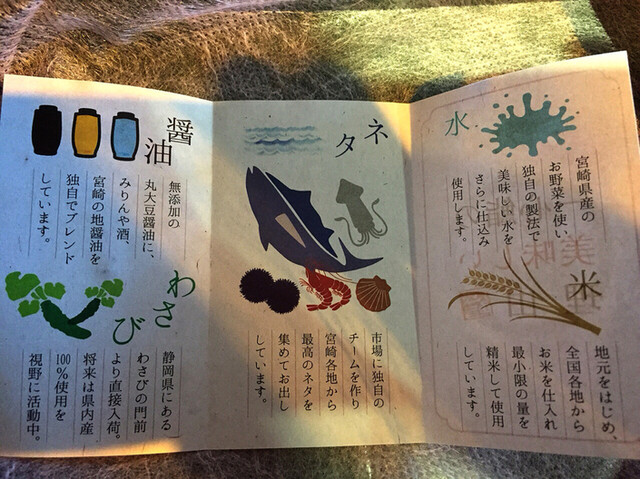 水
宮崎県産の
お野菜を使い
独自の製法で
美味しい水を
さらに仕込み
使用します。
米
地元をはじめ、
全国各地から
お米を仕入れ
最小限の量を
精米して使用
しています。
ネタ
市場に独自の
チームを作り
宮崎各地から
最高のネタを
集めてお出し
しています。
醤油
無添加の
丸大豆醤油に、
みりんや酒、
宮崎の地醤油を
独自でブレンド
しています。
わさび
静岡県にある
わさびの門前
より直接入荷。
将来は県内産
100%使用を
視野に活動中。